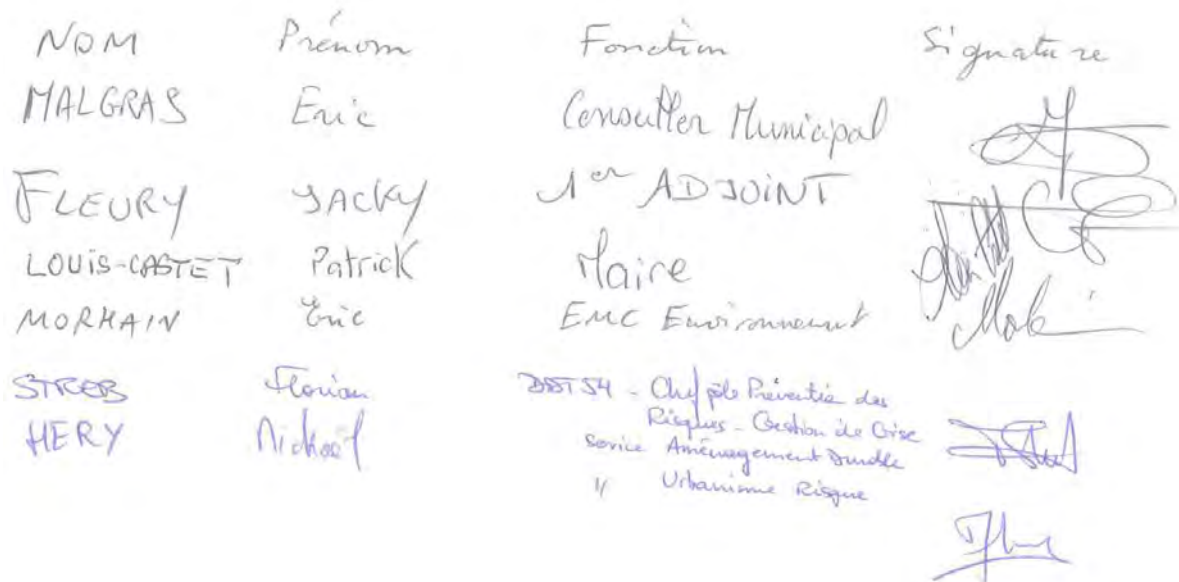 NOM Prénom Fonction Signature
MALGRAS Eric Conseiller Municipal
FLEURY JACKY 1er ADJOINT
LOUIS-CASTET Patrick Maire
MORHAIN Eric EMC Environnement
STREB Florian DDT 54 - Chef pôle Prévention des
Risques - Gestion de Crise
Service Aménagement Durable
HERY Mickaël " Urbanisme Risque